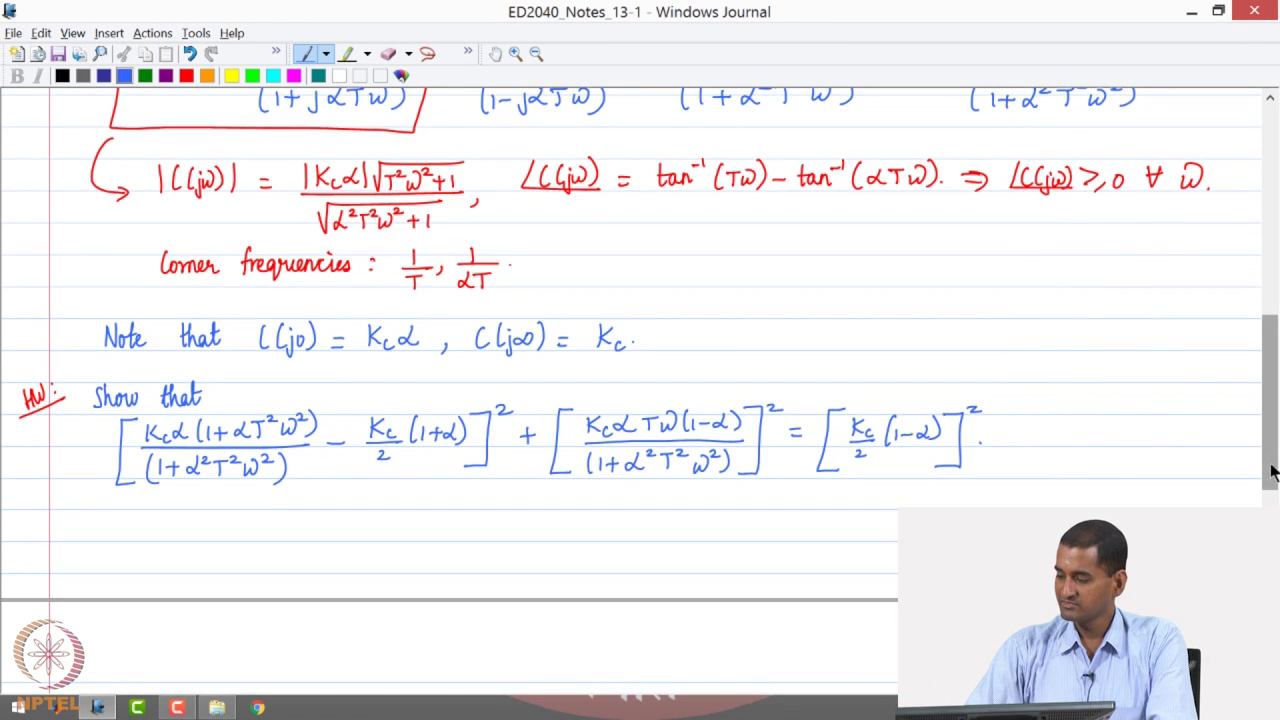 ED2040_Notes_13-1 - Windows Journal
File Edit View Insert Actions Tools Help
(1+jαTω) (1-jαTω) (1+α²T²ω²) (1+α²T²ω²)
|C(jω)| = |K_C α|√(T²ω²+1) / √(α²T²ω²+1) , ∠C(jω) = tan⁻¹(Tω) - tan⁻¹(αTω). ⇒ ∠C(jω) ≥ 0 ∀ ω.
Corner frequencies : 1/T , 1/αT .
Note that C(j0) = K_C α , C(j∞) = K_C.
HW: Show that
[ K_C α (1+αT²ω²) / (1+α²T²ω²) - K_C/2 (1+α) ]² + [ K_C α Tω (1-α) / (1+α²T²ω²) ]² = [ K_C/2 (1-α) ]² .
NPTEL